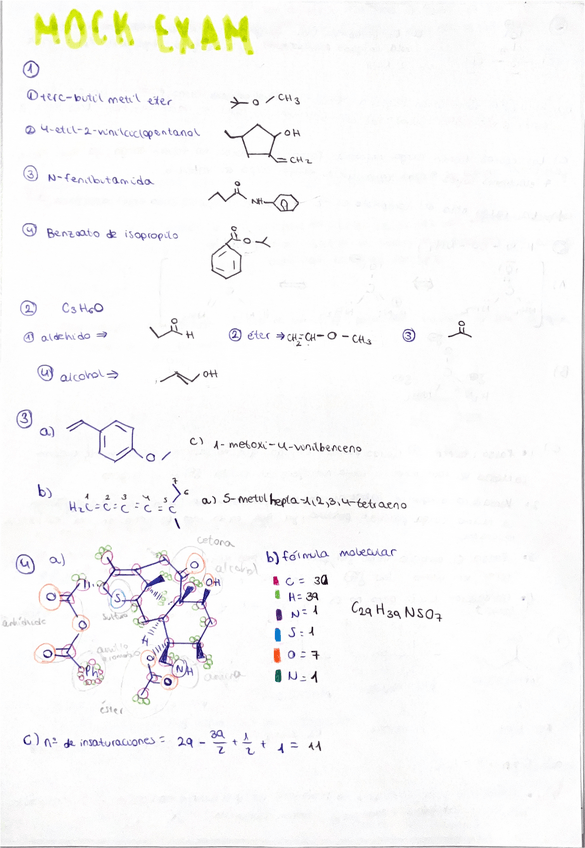 MOCK EXAM
①
① terc-butil metil eter
O CH3
② 4-etil-2-vinilciclopentanol
OH
=CH2
③ N-fenilbutamida
O
NH
④ Benzoato de isopropilo
O
O
② C3H6O
① aldehido ⇒
O
H
② éter ⇒ CH2=CH-O-CH3
③
O
④ alcohol ⇒
OH
③
a)
O
c) 1-metoxi-4-vinilbenceno
b)
1 2 3 4 5 6 7
H2C=C=C=C=C
a) 5-metilhepta-1,2,3,4-tetraeno
④ a)
cetona
alcohol
O
OH
S
sulfuro
O
O
O
H
Ph
O
O
NH
amina
éster
b) fórmula molecular
C = 30
H = 39
N = 1
S = 1
O = 7
N = 1
C29H39NSO7
c) nº de insaturaciones = 29 - 39/2 + 1/2 + 1 = 11